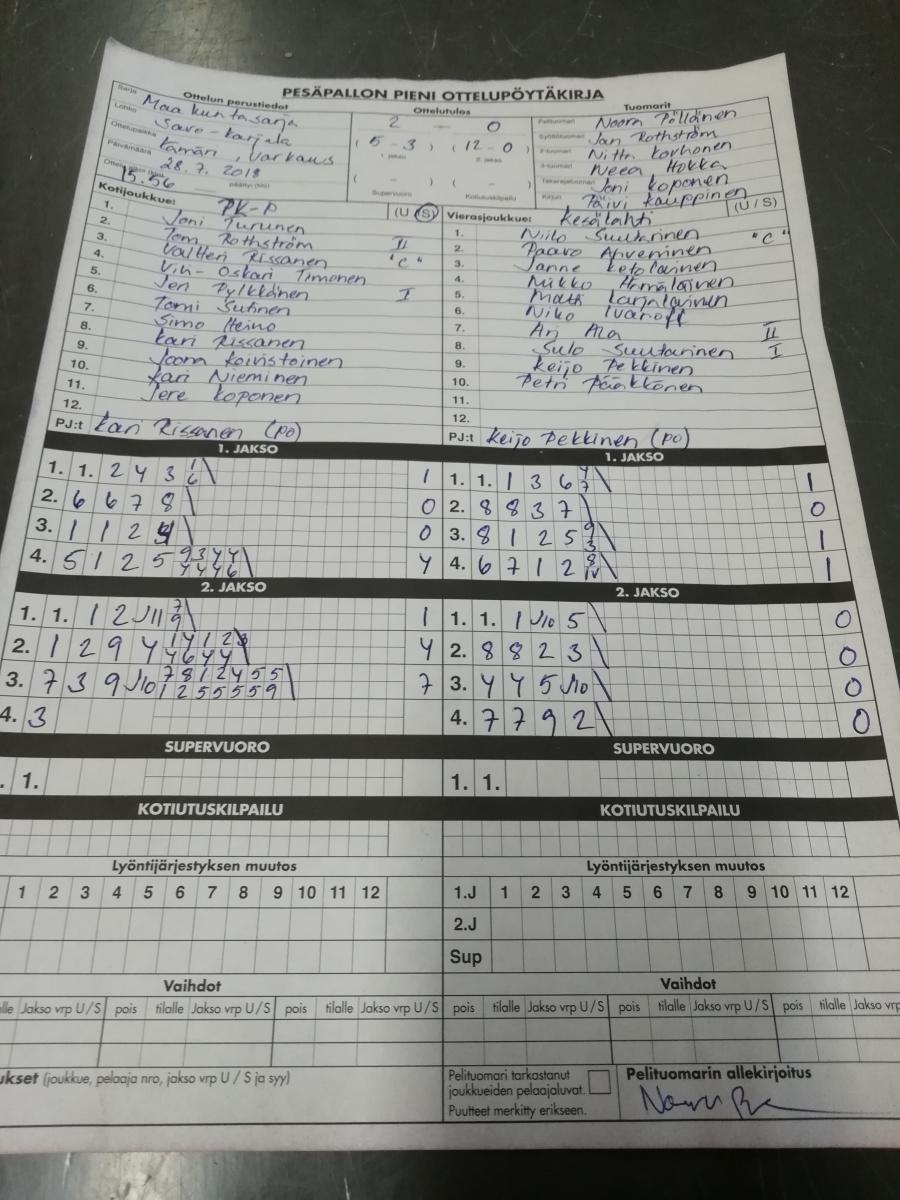 PESÄPALLON PIENI OTTELUPÖYTÄKIRJA
Ottelun perustiedot
Ottelutulos
Tuomarit
Sarja Maakuntasarja
Lohko Savo-Karjala
Ottelupaikka Kämäri, Varkaus
Päivämäärä 28.7.2018
15.56
päättyi (klo)
2 - 0
( 5 - 3 ) ( 12 - 0 )
1. jakso 2. jakso
( - ) ( - )
Supervuoro Kotiutuskilpailu
Pelituomari Noora Pöllänen
Syöttötuomari Jan Rothström
2-tuomari Nittn Korhonen
3-tuomari Neea Hokka
Takarajatuomari Joni Koponen
Kirjuri Päivi Kauppinen
Kotijoukkue: PK-P (U / S)
1. Joni Turunen
2. Tom Rothström II
3. Valtteri Rissanen "C"
4. Vili-Oskari Timonen
5. Jeri Pylkkönen I
6. Tomi Sutinen
7. Simo Heino
8. Kari Rissanen
9. Joona Koivistoinen
10. Kari Nieminen
11. Jere Koponen
12.
PJ:t Kari Rissanen (po)
Vierasjoukkue: Kesälahti (U / S)
1. Niilo Suutarinen "C"
2. Paavo Arveninen
3. Janne Ketolainen
4. Mikko Hämäläinen
5. Matti Karjalainen
6. Niko Ivanoff
7. Ari Ala II
8. Sulo Suutarinen I
9. Keijo Pekkinen
10. Petri Pääkkönen
11.
12.
PJ:t Keijo Pekkinen (po)
1. JAKSO
1. 1. 2 4 3 1 6 \ 1
2. 6 6 7 8 \ 0
3. 1 1 2 4 \ 0
4. 5 1 2 5 9 3 4 4 4 4 4 6 \ 4
1. JAKSO
1. 1. 1 3 6 4 7 \ 1
2. 8 8 3 7 \ 0
3. 8 1 2 5 9 3 \ 1
4. 6 7 1 2 8 IV \ 1
2. JAKSO
1. 1. 1 2 J11 7 9 \ 1
2. 1 2 9 4 1 4 1 2 4 6 4 4 \ 4
3. 7 3 9 J10 7 8 1 2 4 5 5 1 2 5 5 5 5 9 \ 7
4. 3
2. JAKSO
1. 1. 1 J10 5 \ 0
2. 8 8 2 3 \ 0
3. 4 4 5 J10 \ 0
4. 7 7 9 2 \ 0
SUPERVUORO
. 1.
SUPERVUORO
1. 1.
KOTIUTUSKILPAILU
KOTIUTUSKILPAILU
Lyöntijärjestyksen muutos
1 2 3 4 5 6 7 8 9 10 11 12
Lyöntijärjestyksen muutos
1.J 1 2 3 4 5 6 7 8 9 10 11 12
2.J
Sup
Vaihdot
lle Jakso vrp U / S pois tilalle Jakso vrp U / S pois tilalle Jakso vrp U / S
Vaihdot
pois tilalle Jakso vrp U / S pois tilalle Jakso vrp U / S pois tilalle Jakso vrp
ukset (joukkue, pelaaja nro, jakso vrp U / S ja syy)
Pelituomari tarkastanut
joukkueiden pelaajaluvat.
Puutteet merkitty erikseen.
Pelituomarin allekirjoitus